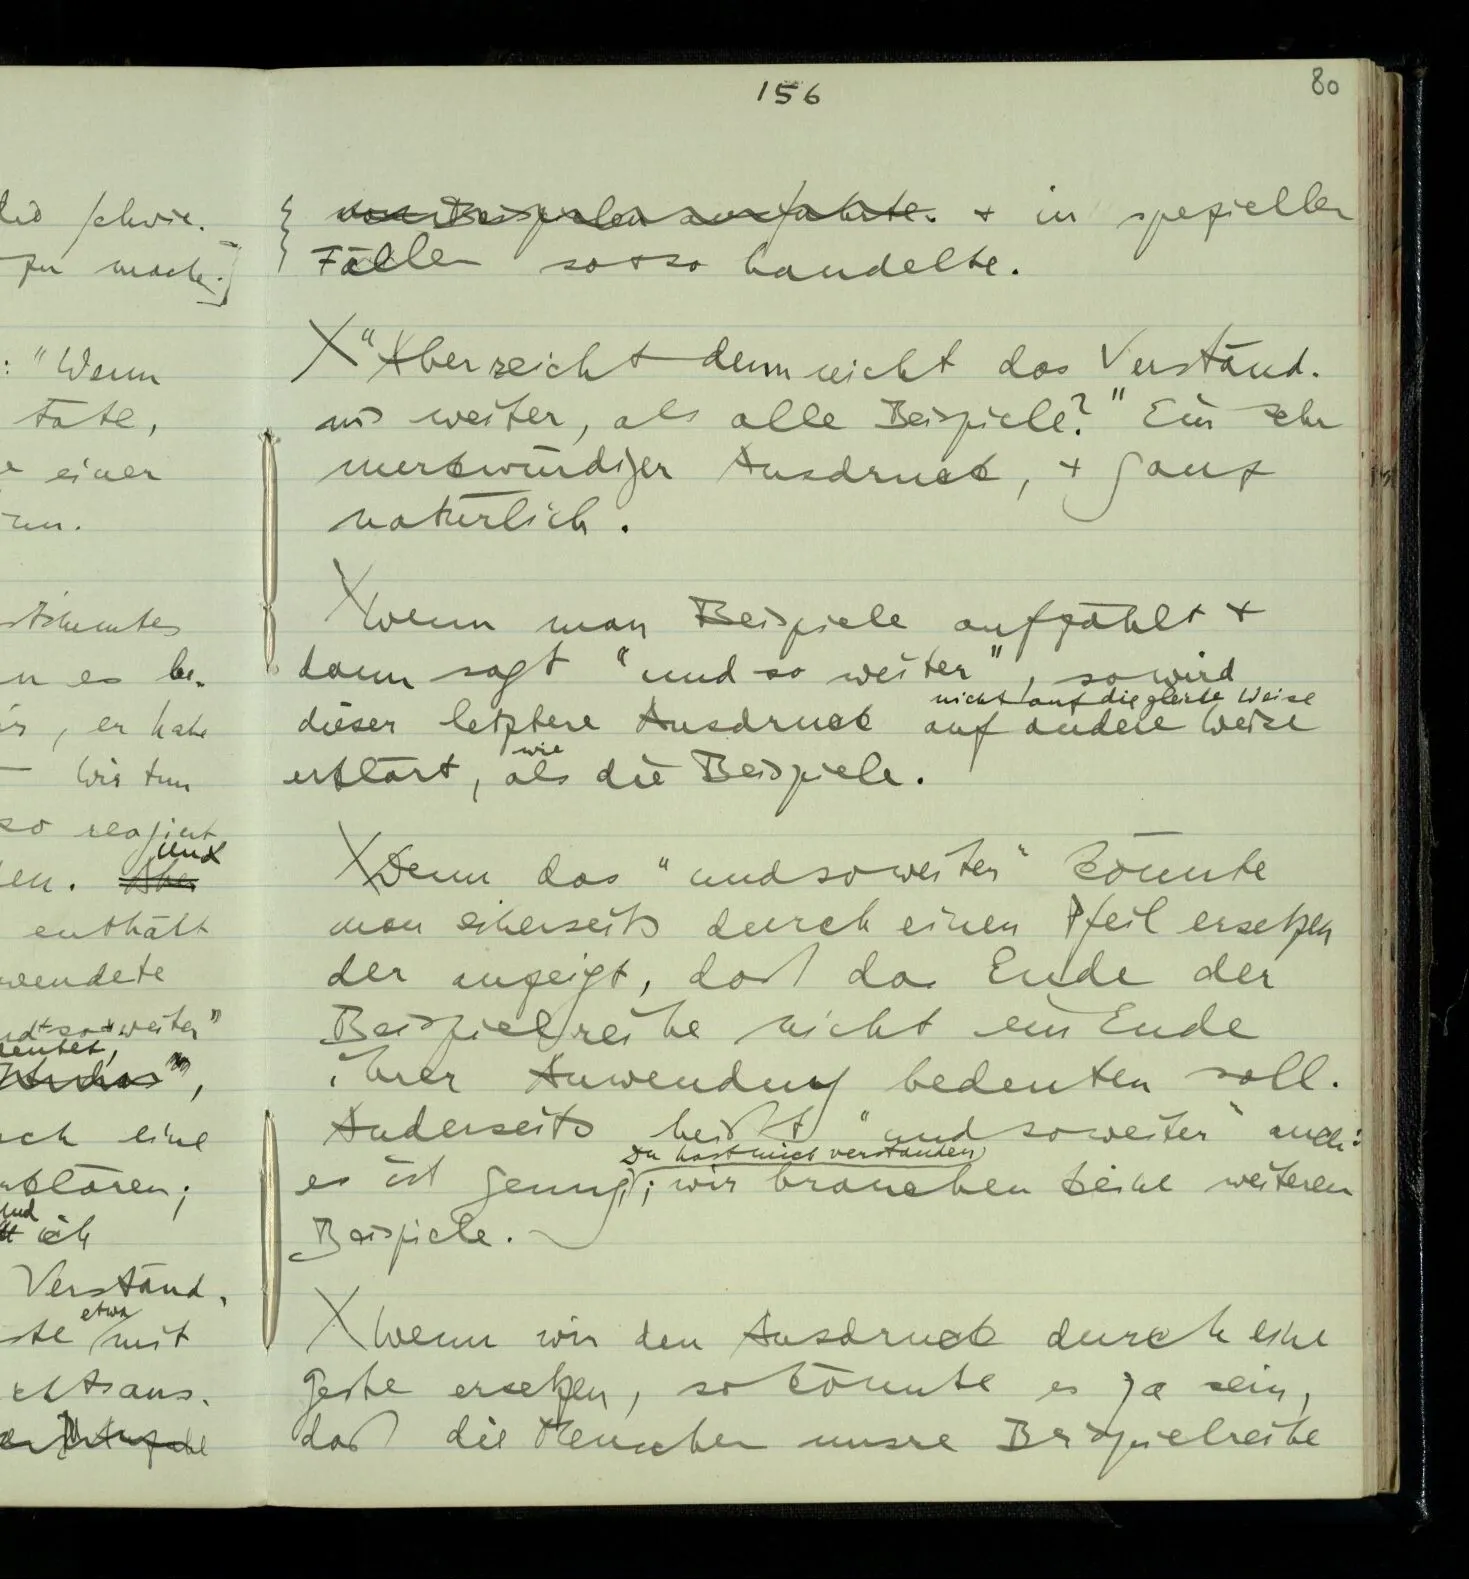 156
80
led schwie.
zu mach.]
: "Wenn
täte,
einer
stimmtes
n es be-
, er habe
— Wir tun
so reagiert
und
en. Aber
enthält
wendete
und so weiter"
deutet,
ch eine
erklären;
und
ich
Verständ-
etwa
mit
chtsaus-
von Beispielen ausführte. + in speziellen
Fällen so+so handelte.
"Aber reicht denn nicht das Verständ-
nis weiter, als alle Beispiele?" Ein sehr
merkwürdiger Ausdruck, + ganz
natürlich.
Wenn man Beispiele aufzählt +
dann sagt "und so weiter", so wird
nicht auf die gleiche Weise
dieser letztere Ausdruck auf andere Weise
wie
erklärt, als die Beispiele.
Denn das "und so weiter" könnte
man einerseits durch einen Pfeil ersetzen
der anzeigt, daß das Ende der
Beispielreihe nicht ein Ende
ihrer Anwendung bedeuten soll.
Anderseits heißt "und so weiter" auch:
Du hast mich verstanden
es ist genug; wir brauchen keine weiteren
Beispiele.
Wenn wir den Ausdruck durch eine
Geste ersetzen, so könnte es ja sein,
daß die Menschen unsre Beispielreihe